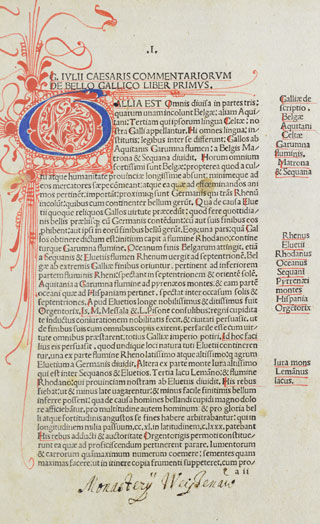 .I.
G. IVLII CAESARIS COMMENTARIORVM
DE BELLO GALLICO LIBER PRIMVS.
GALLIA EST Omnis diuisa in partes tris:
quarum unam incolunt Belgæ: aliam Aqui
tani: Tertiam qui ipsorum lingua Celtæ: no
stra Galli appellantur. Hi omnes lingua, in
stitutis, legibus inter se differunt. Gallos ab
Aquitanis Garumna flumen: a Belgis Matro
na & Sequana diuidit. Horum omnium
fortissimi sunt Belgæ: propterea quod a cul
tu atque humanitate prouinciæ longissime absunt: minimeque ad
eos mercatores sæpe comeant: atque ea, quæ ad effeminandos ani
mos pertinent, important: proximique sunt Germanis qui trans Rhenū
incolunt: quibuscum continenter bellum gerūt. Qua de causa Elue
tii quoque reliquos Gallos uirtute præcedūt; quod fere quotidia
nis bellis præliisque cū Germanis contēdunt: cū aut suis finibus eos
prohibent: aut ipsi in eorū finibus bellū gerūt. Eorum una pars: quā Gal
los obtinere dictum est: initium capit a flumine Rhodano: contine
tur Garumna flumine, Oceano: finibus Belgarum: attingit, etiā
a Sequanis & Eluetiis flumen Rhenum: uergit ad septentriones. Bel
gæ ab extremis Galliæ finibus oriuntur. pertinent ad inferiorem
partem fluminis Rheni: spectant in septentrionem & orientē solē.
Aquitania a Garumna flumine ad pyreneos montes, & eam partē
oceani quæ ad Hispaniam pertinet, spectat inter occasum solis &
septentriones. Apud Eluetios longe nobilissimus & ditissimus fuit
Orgetorix. Is. M. Messala & L. Pisone consulibus: regni cupidita
te inductus coniurationem nobilitatis fecit, & ciuitati persuasit, ut
de finibus suis cum omnibus copiis exirent. perfacile esse cum uir
tute omnibus præstarent, totius Galliæ imperio potiri. Id hoc faci
lius eis persuasit, quod undique loci natura Eluetii continen
tur, una ex parte flumine Rheno latissimo atque altissimo, qui agrum
Eluetium a Germanis diuidit. Altera ex parte monte Iura altissimo
qui est inter Sequanos & Eluetios. Tertia lacu Lemāno, & flumine
Rhodano, qui prouinciam nostram ab Eluetiis diuidit. His rebus
fiebat, ut & minus late uagarentur, & minus facile finitimis bellum
inferre possent: qua de causa homines bellandi cupidi magno dolo
re afficiebātur, pro multitudine autem hominum, & pro gloria bel
li atque fortitudinis angustos se fines habere arbitrabantur: qui in
longitudinem milia passuum. cc.xl. in latitudinem, clxxx. patebant
His rebus adducti & auctoritate Orgetorigis permoti constitue
runt ea quæ ad proficiscendum pertinerent parare. Iumentorum
& carrorum quammaximum numerum coemere: sementes quam
maximas facere: ut in itinere copia frumenti suppeteret, cum pro
a ii
Galliæ de
scriptio.
Belgæ
Aquitani
Celtæ
Garumna
flumen
Matrona
& Sequana
Rhenus
Eluetii
Rhodanus
Oceanus
Sequani
Pyrenæi
montes
Hispania
Orgetorix
Iura mons
Lemānus
lacus.
Monasterij Weissenaw